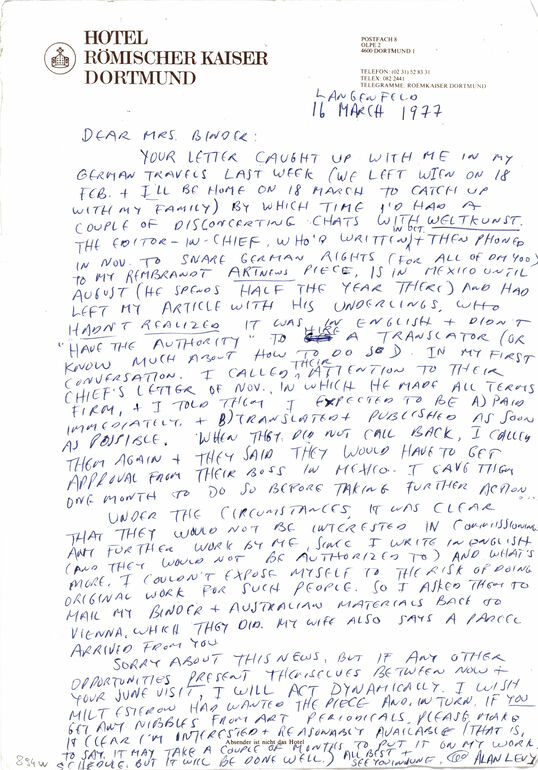 HOTEL
RÖMISCHER KAISER
DORTMUND
POSTFACH 8
OLPE 2
4600 DORTMUND 1
TELEFON: (02 31) 52 83 31
TELEX: 082 2441
TELEGRAMME: ROEMKAISER DORTMUND
LANGENFELD
16 MARCH 1977
DEAR MRS. BINDER:
YOUR LETTER CAUGHT UP WITH ME IN MY
GERMAN TRAVELS LAST WEEK (WE LEFT WIEN ON 18
FEB. + I'LL BE HOME ON 18 MARCH TO CATCH UP
WITH MY FAMILY) BY WHICH TIME I'D HAD A
COUPLE OF DISCONCERTING CHATS WITH WELTKUNST.
THE EDITOR-IN-CHIEF, WHO'D WRITTEN IN OCT. + THEN PHONED
IN NOV. TO SNARE GERMAN RIGHTS (FOR ALL OF DM 400)
TO MY REMBRANDT ARTNEWS PIECE, IS IN MEXICO UNTIL
AUGUST (HE SPENDS HALF THE YEAR THERE) AND HAD
LEFT MY ARTICLE WITH HIS UNDERLINGS, WHO
HADN'T REALIZED IT WAS IN ENGLISH + DIDN'T
"HAVE THE AUTHORITY" TO HIRE A TRANSLATOR (OR
KNOW MUCH ABOUT HOW TO DO SO). IN MY FIRST
CONVERSATION, I CALLED THEIR ATTENTION TO THEIR
CHIEF'S LETTER OF NOV., IN WHICH HE MADE ALL TERMS
FIRM, + I TOLD THEM I EXPECTED TO BE A) PAID
IMMEDIATELY, + B) TRANSLATED + PUBLISHED AS SOON
AS POSSIBLE. WHEN THEY DID NOT CALL BACK, I CALLED
THEM AGAIN + THEY SAID THEY WOULD HAVE TO GET
APPROVAL FROM THEIR BOSS IN MEXICO. I GAVE THEM
ONE MONTH TO DO SO BEFORE TAKING FURTHER ACTION...
UNDER THE CIRCUMSTANCES, IT WAS CLEAR
THAT THEY WOULD NOT BE INTERESTED IN COMMISSIONING
ANY FURTHER WORK BY ME, SINCE I WRITE IN ENGLISH
(AND THEY WOULD NOT BE AUTHORIZED TO) AND WHAT'S
MORE, I COULDN'T EXPOSE MYSELF TO THE RISK OF DOING
ORIGINAL WORK FOR SUCH PEOPLE. SO I ASKED THEM TO
MAIL MY BINDER + AUSTRALIAN MATERIALS BACK TO
VIENNA, WHICH THEY DID. MY WIFE ALSO SAYS A PARCEL
ARRIVED FROM YOU.
SORRY ABOUT THIS NEWS, BUT IF ANY OTHER
OPPORTUNITIES PRESENT THEMSELVES BETWEEN NOW +
YOUR JUNE VISIT, I WILL ACT DYNAMICALLY. I WISH
MILT ESTEROW HAD WANTED THE PIECE AND, IN TURN, IF YOU
GET ANY NIBBLES FROM ART PERIODICALS, PLEASE MAKE
IT CLEAR I'M INTERESTED + REASONABLY AVAILABLE (THAT IS,
Absender ist nicht das Hotel
TO SAY, IT MAY TAKE A COUPLE OF MONTHS TO PUT IT ON MY WORK
SCHEDULE, BUT IT WILL BE DONE WELL.) ALL BEST + SEE YOU IN JUNE, ALAN LEVY
894w